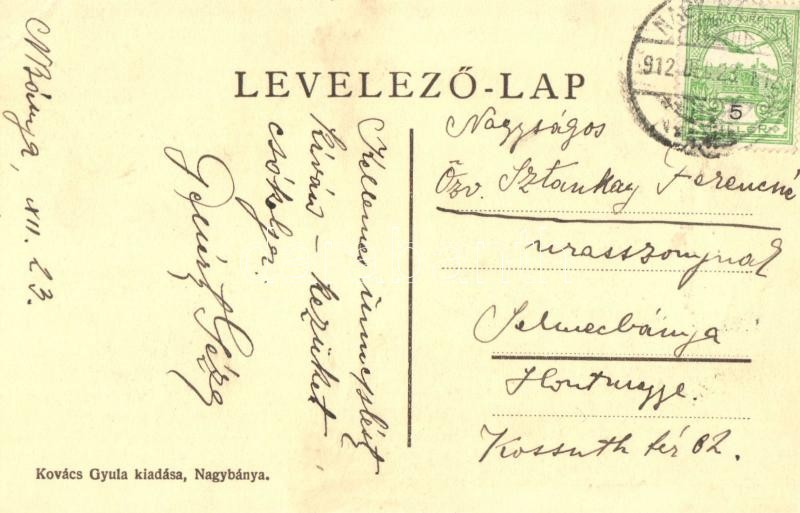 LEVELEZŐ-LAP
NBánya, XII. 23.
Kellemes ünnepleést
kíván – kezüket
csókolja:
Géza
Nagyságos
Özv. Sztankay Ferencné
urasszonynak
Selmecbánya
Hontmegye.
Kossuth tér 62.
912 DEC 23
MAGYAR KIR. POSTA
5
FILLÉR
Kovács Gyula kiadása, Nagybánya.